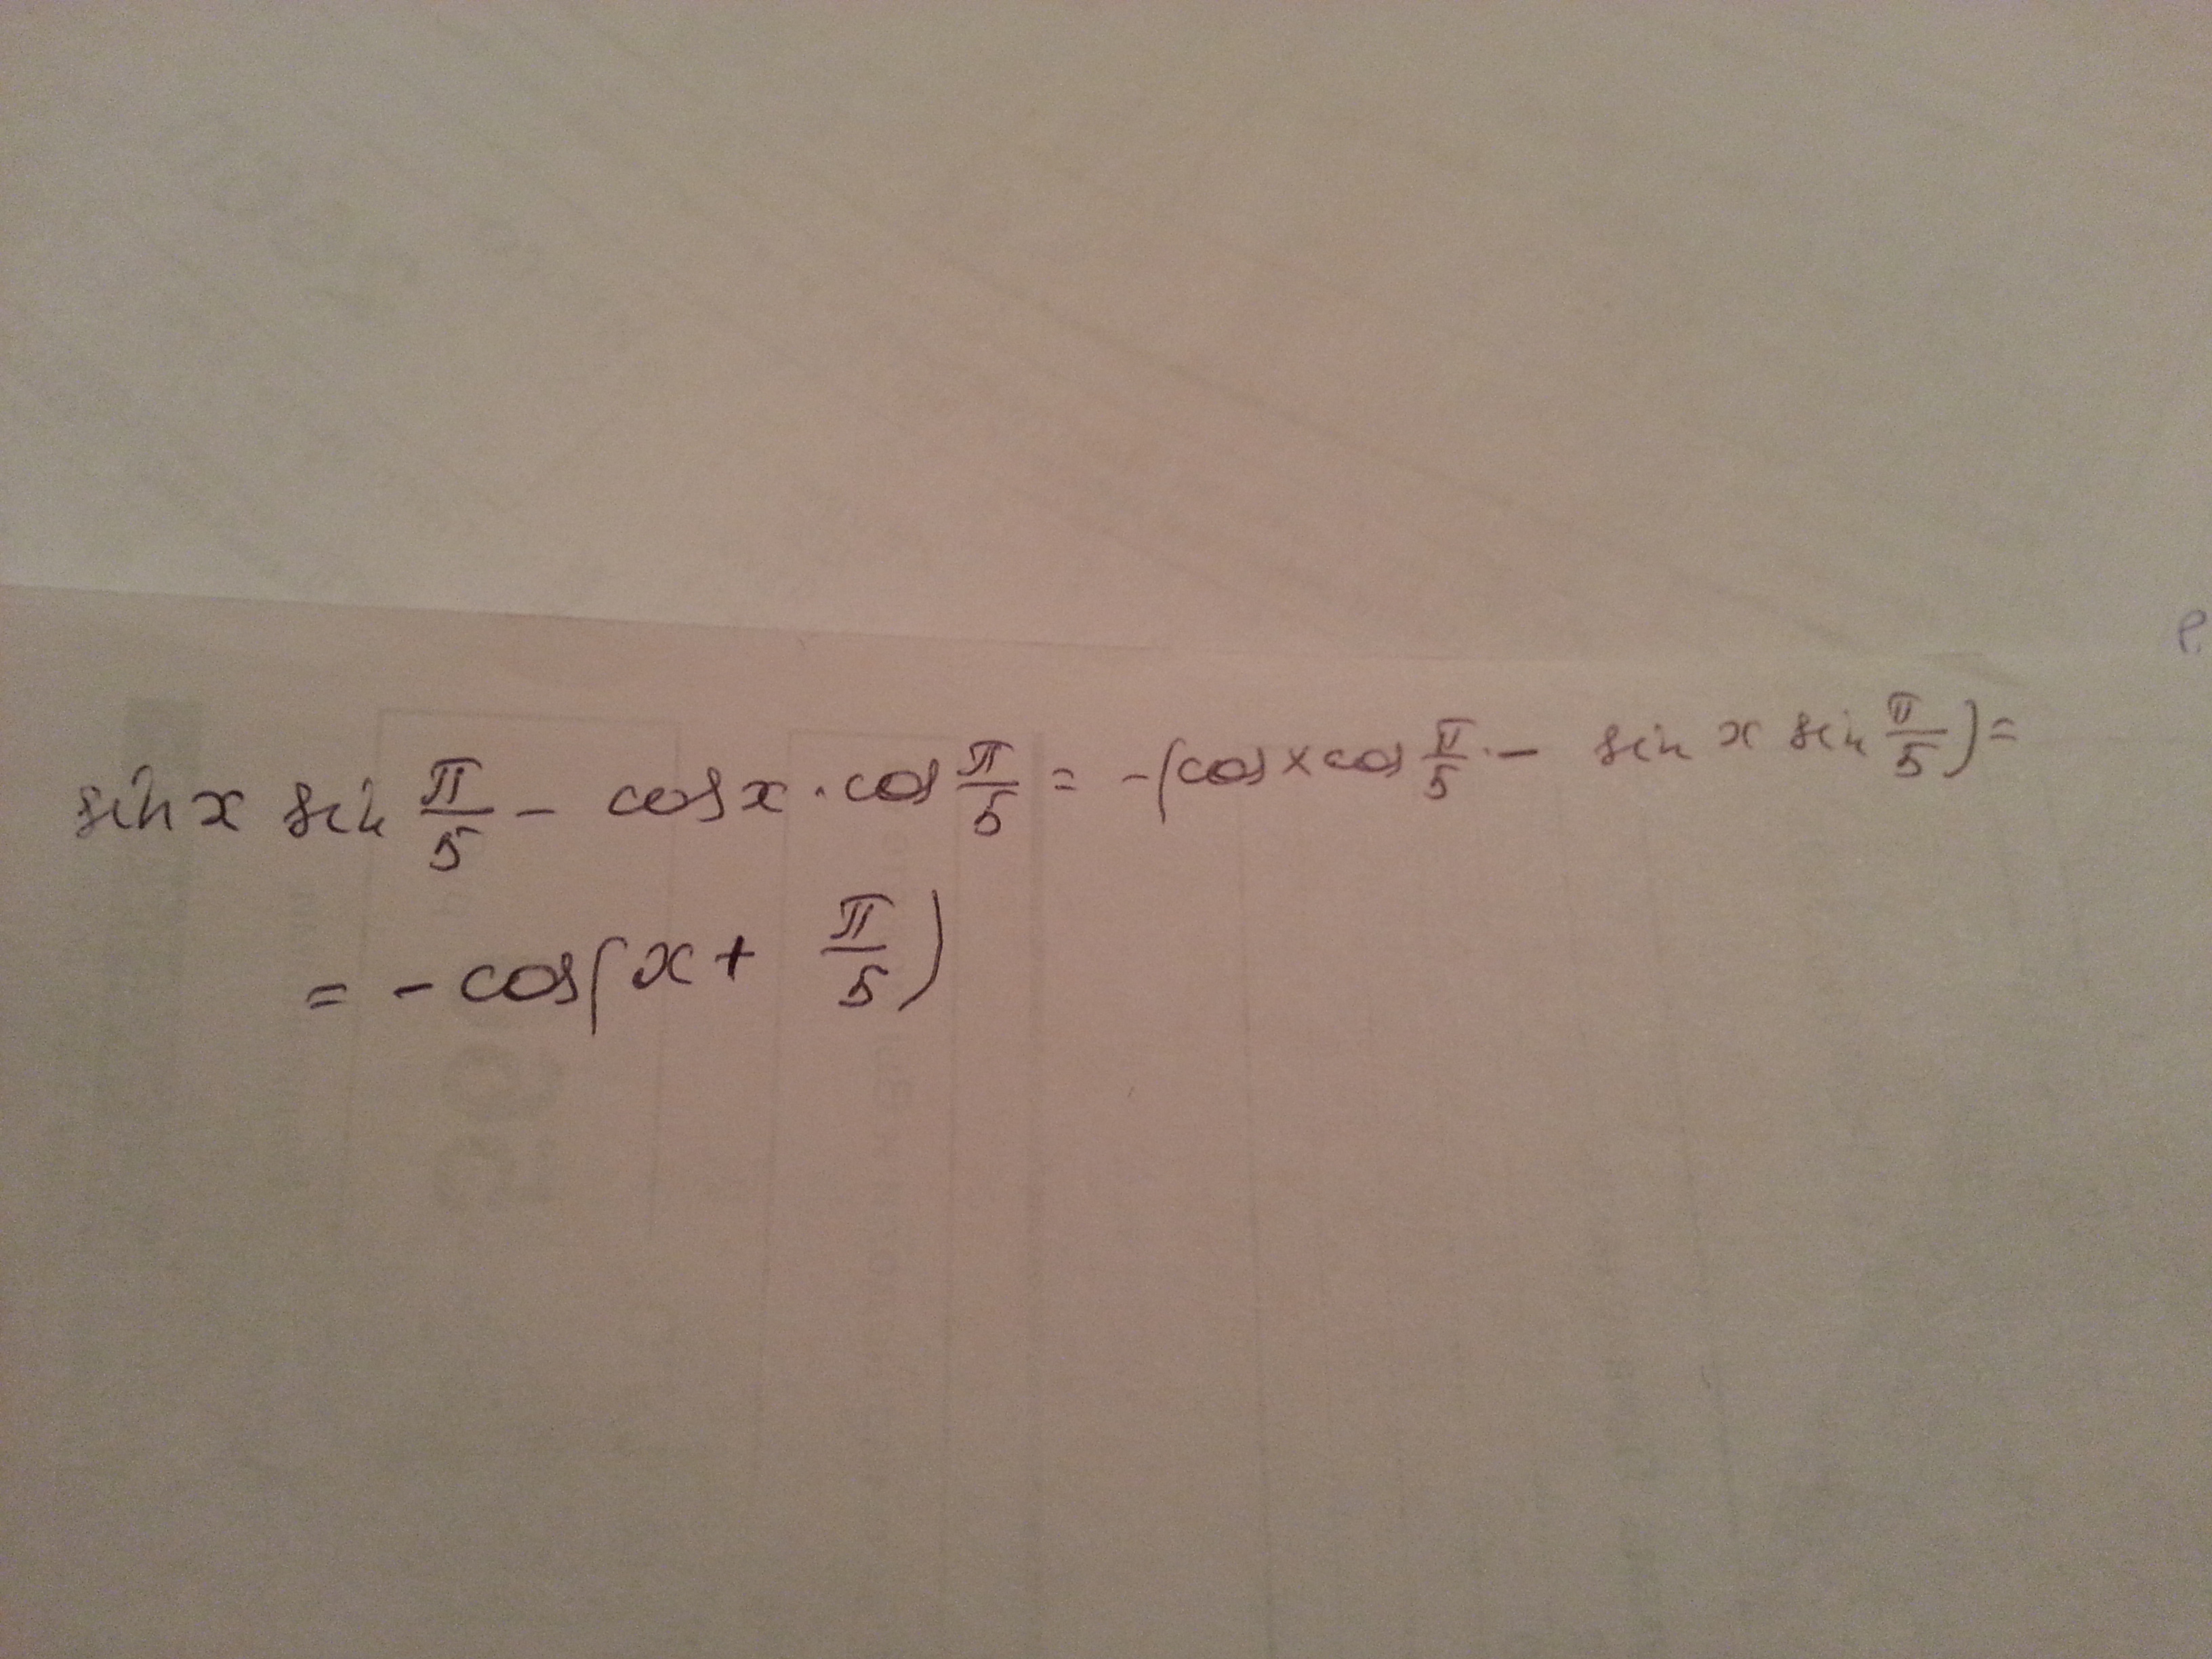 sin x sin π/5 - cos x · cos π/5 = -(cos x cos π/5 - sin x sin π/5) =
= - cos(x + π/5)